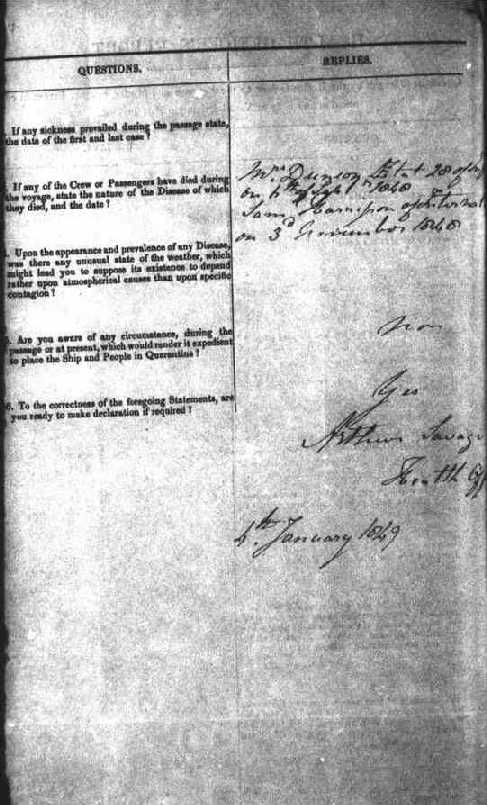 QUESTIONS.
REPLIES.
If any sickness prevailed during the passage state,
the date of the first and last case?
If any of the Crew or Passengers have died during
the voyage, state the nature of the Disease of which
they died, and the date?
Mrs Duncan 28
on 6th Septr 1848
Saml Harrison of
on 3d November 1848
Upon the appearance and prevalence of any Disease,
was there any unusual state of the weather, which
might lead you to suppose its existence to depend
rather upon atmospherical causes than upon specific
contagion?
Are you aware of any circumstance, during the
passage or at present, which would render it expedient
to place the Ship and People in Quarantine?
6. To the correctness of the foregoing Statements, are
you ready to make declaration if required?
Arthur Savage
Health
4th January 1849